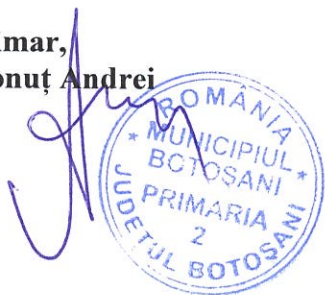 imar,
onuț Andrei
ROMÂNIA
* MUNICIPIUL *
BOTOȘANI
PRIMARIA
2
JUDEȚUL BOTOȘANI